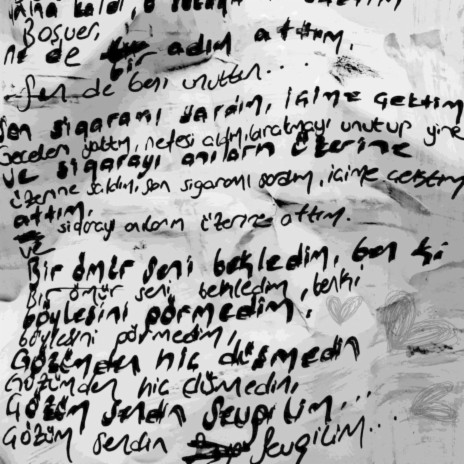 Boşver,
ne de bir adım attım,
Sen de beni unuttun...
Son sigaramı sardım, içime çektim
Geceden yattım, nefesi aldım, bırakmayı unutup yine
ve sigarayı anıların üzerine
üzerine saldım, son sigaramı sardım, içime çektim
attım.
sigarayı anıların üzerine attım.
ve
Bir ömür seni bekledim, ben ki
Bir ömür seni bekledim, benki
böylesini görmedim,
böylesini görmedim,
Gözümden hiç düşmedin
Gözümden hiç düşmedin,
Gözüm sendin sevgilim...
Gözüm sendin sevgilim...